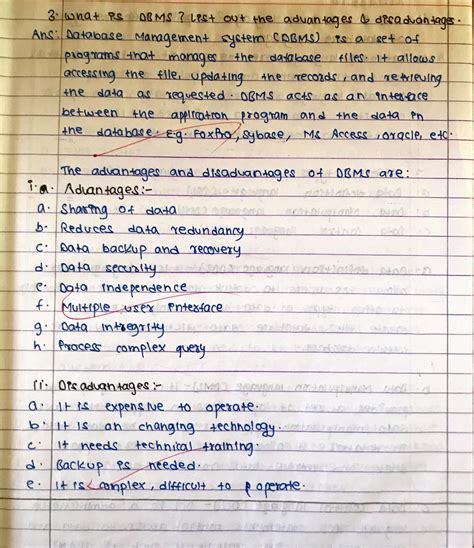 3. What is DBMS? List out the advantages & disadvantages.
Ans: Database Management system (DBMS) is a set of
programs that manages the database files. It allows
accessing the file, updating the records, and retrieving
the data as requested. DBMS acts as an interface
between the application program and the data in
the database. Eg. FoxPro, Sybase, Ms Access, oracle, etc.
The advantages and disadvantages of DBMS are:
i. a. Advantages:-
a. Sharing of data
b. Reduces data redundancy
c. Data backup and recovery
d. Data security
e. Data independence
f. Multiple user interface
g. Data intregrity
h. Process complex query
ii. Disadvantages:-
a. It is expensive to operate.
b. It is an changing technology.
c. It needs technical training.
d. Backup is needed.
e. It is complex, difficult to operate.